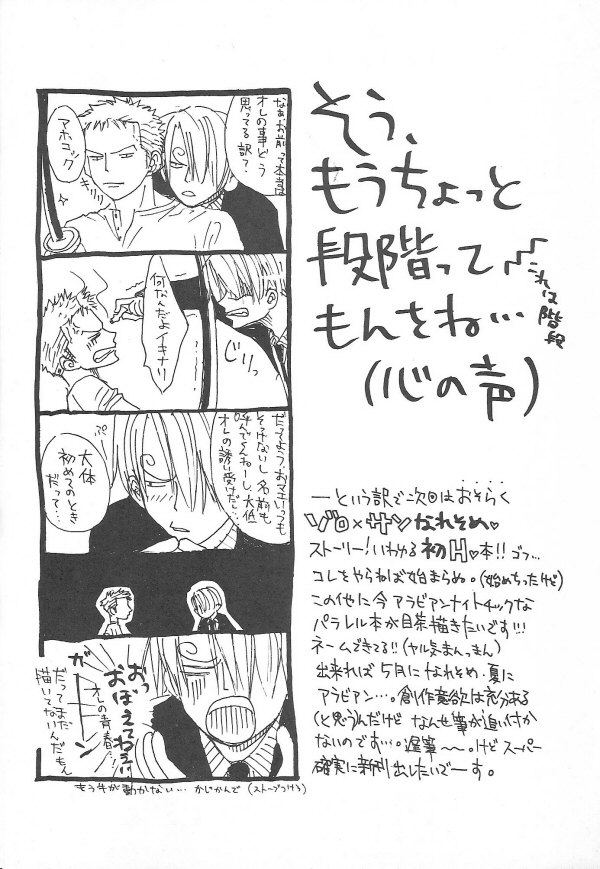 なぁお前って本当は
オレの事どう
思ってる訳?
アホコック
きりっ
何なんだよイキナリ
じりっ
だってよう、おマエいつも
そっけないし名前も
呼んでくんねーし、大体
オレの誘い受けだし…
ぷ
大体
初めてのとき
だって…
おっ
おぼえてねぇ!!
オレの青春…!
ガーン
だってまだ
描いてないんだもん
もう手が動かない…かじかんで(ストーブつけろ)
そう、
もうちょっと
段階って
もんをね…
(心の声)
これは階段
―という訳で次回はおそらく
ゾロ×サンなれそめ♥
ストーリー!いわゆる初H♥本!!ゴフ…
コレをやらねば始まらぬ。(始めちったけど)
この他に今アラビアンナイトチックな
パラレル本が目茶描きたいです!!!
ネームできてる!!(ヤル気まんまん)
出来れば5月になれそめ、夏に
アラビアン…。創作意欲は充分ある
(と思う)んだけどなんせ筆が追い付か
ないのです…。遅筆〜〜。けどスーパー
確実に新刊出したいでーす。